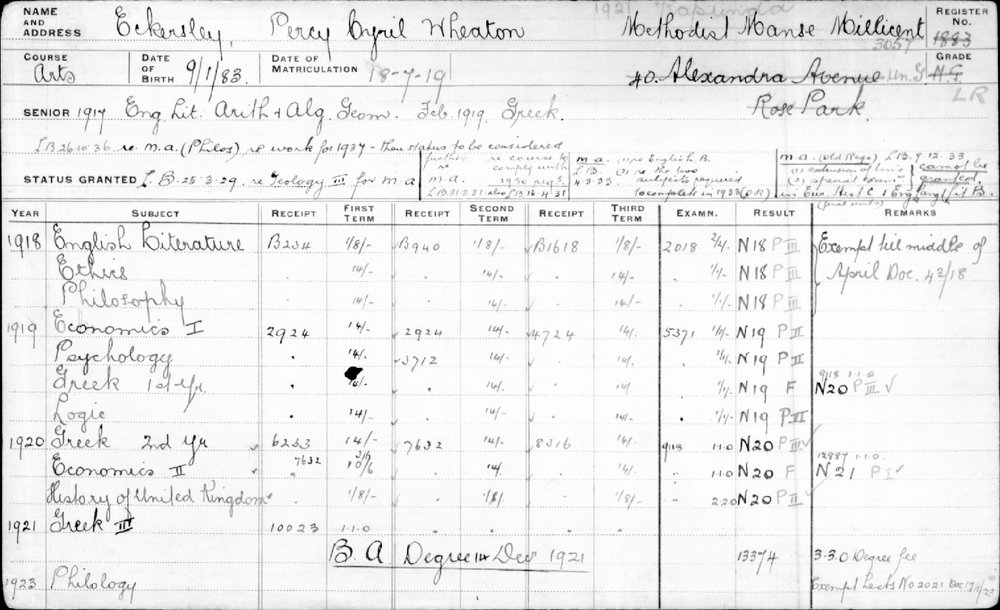 1921 Kapunda
NAME AND ADDRESS Eckersley, Percy Cyril Wheaton Methodist Manse Millicent REGISTER No. 1883 3057
COURSE Arts DATE OF BIRTH 9/1/83. DATE OF MATRICULATION 18-7-19 40. Alexandra Avenue GRADE Un. G N.G. LR
SENIOR 1917 Eng. Lit. Arith + Alg. Geom. Feb. 1919. Greek. Rose Park.
L.B. 26.10.36 re M.A. (Philos) re work for 1937 - then status to be considered
STATUS GRANTED L.B. 25.3.29. re Geology III for M.A.
further re course to re comply with 1930 regs.
L.B. 31.3.31. also L.B. 16.4.31
M.A. (1) re English B.
L.B. (2) re the two
4.3.33. subjects required
to complete in 1933 (O.R.)
M.A. (Old Regs) L.B. 7.12.33
(1) extension of time cannot be
(2) special exams granted
in Eur. Hist C + Eng Lang + Lit B.
YEAR SUBJECT RECEIPT FIRST TERM RECEIPT SECOND TERM RECEIPT THIRD TERM EXAMN. RESULT REMARKS
1918 English Literature B234 1/8/- B940 1/8/- B1618 1/8/- 2018 2/4/. N18 P III Exempt till middle of
Ethics 14/- 14/- 14/- 1/7/. N18 P III April Doc. 42/18
Philosophy 14/- 14/- 14/- 1/7/- N18 P III
1919 Economics I 2924 14/- 2924 14/- 4724 14/. 5371 1/7/. N19 P II
Psychology . 14/- 3712 14/- . 14/. 1/7/. N19 P II
Greek 1st Yr. . 14/- . 14/- . 14/. 1/7/ N19 F 9118 1.1.0 N20 P III ✓
Logic . 14/- . 14/- . 14/. 1/7/. N19 P II
1920 Greek 2nd Yr 6233 14/- 7632 14/- 8316 14/. 9118 1.1.0 N20 P III ✓
Economics II 7632 10/6 . 14/. . 14/. 1.1.0 N20 F 12887 1.1.0. N21 P I ✓
History of United Kingdom 1/8/- 1/8/. 1/8/- 2.2.0 N20 P II ✓
1921 Greek III 10023 1.1.0 . . . .
B.A Degree 14 Decr 1921 13374 3.3.0 Degree fee
1923 Philology Exempt Lects No 2021 Dec 17/4/23